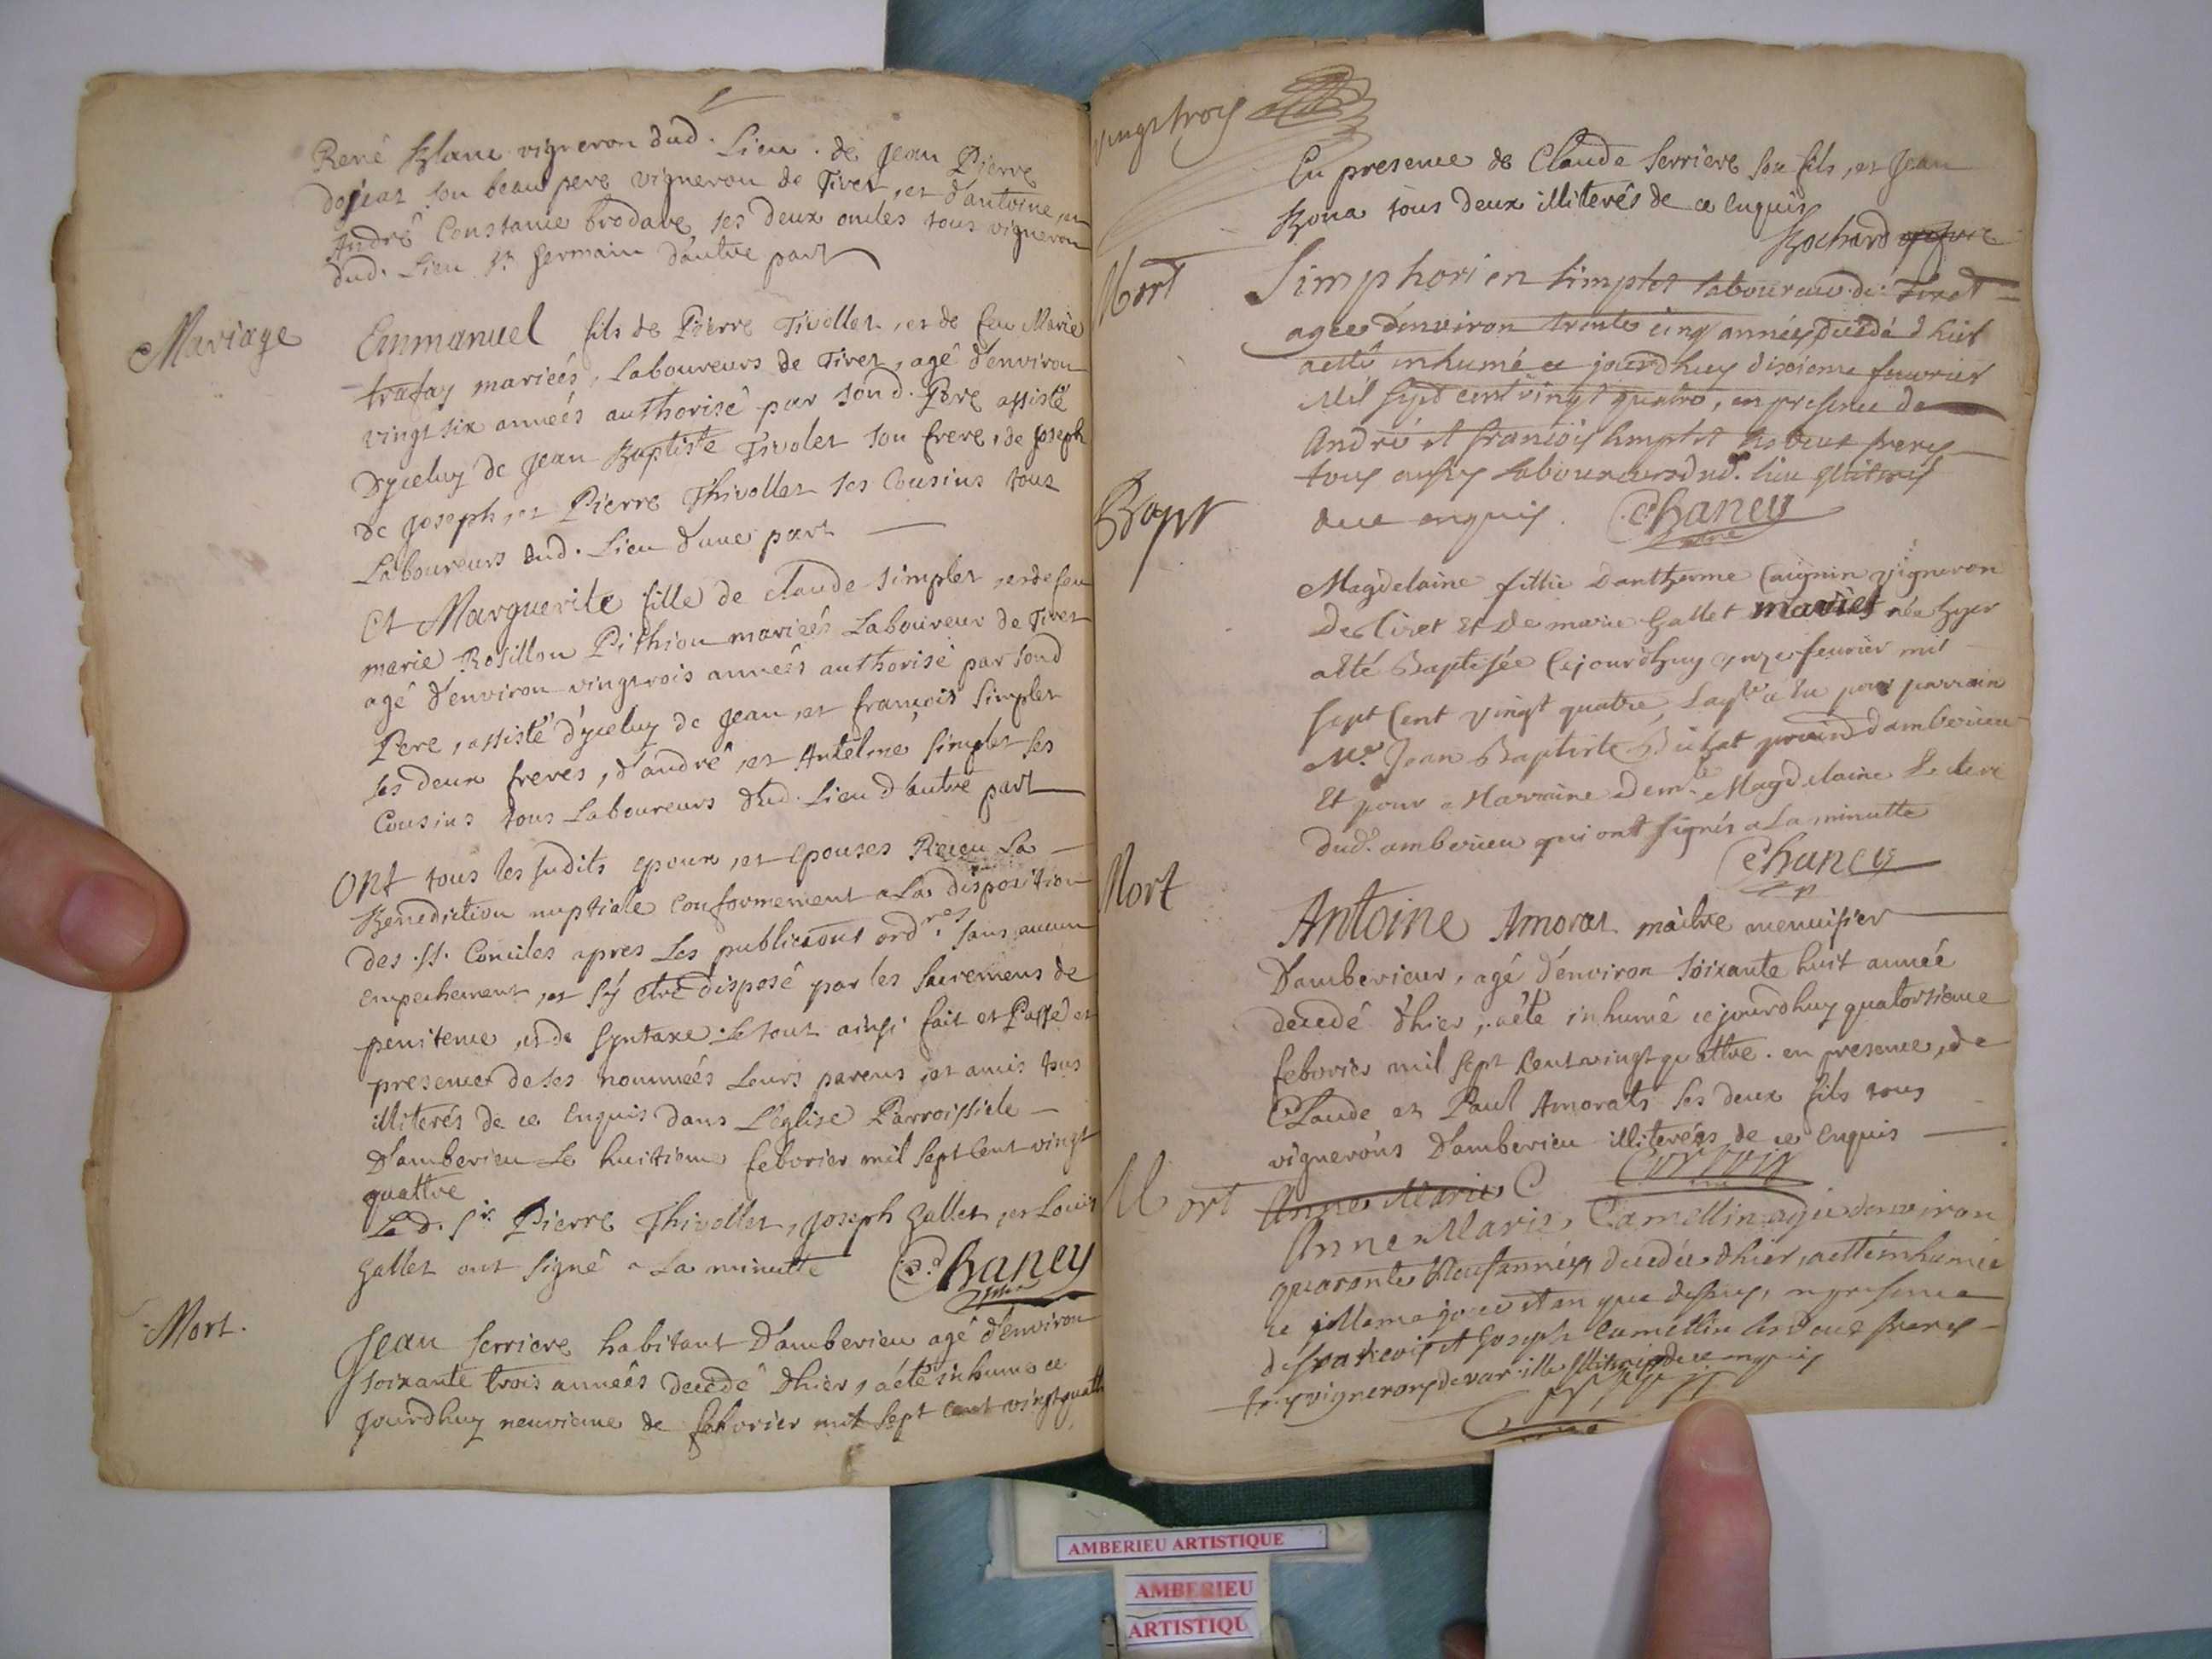 René Blanc vigneron dud. Lieu. de Jean Pierre
son beau pere vigneron de Tiret, et d'antoine, et
André Constance Brodave ses deux oncles tous vignerons
dud. Lieu St. germain d'autre part
Mariage
Emmanuel fils de Pierre Tivollet, et de feu Marie
trafay mariéés, Laboureurs de Tiret, agé d'environ
vingt six annéés authorisé par sond. Pere assisté
d'yceluy de Jean Baptiste Tivolet son frere, de Joseph
de Joseph, et Pierre Thivollet ses Cousins tous
Laboureurs dud. Lieu d'une part
Et Marguerite fille de claude Simplet, et de feu
marie Rosillon Pithiou mariéés Laboureur de Tiret
agé d'environ vingtrois annéés authorisé par sond
Pere, assisté d'yceluy de Jean, et francois Simplet
ses deux freres, d'andré, et Antelme Simplet ses
Cousins tous Laboureurs dud. Lieu d'autre part
Ont tous les sudits epoux, et epouses Receu La
Benediction nuptiale Conformement a La disposition
des SS. Conciles apres Les publications ordres. sans aucun
empechement, et s'y etre disposé par les sacremens de
penitence, et de Syntaxe. Le tout ainsi fait et Passé en
presence de ses nomméés Leurs parens, et amis tous
illiterés de ce Enquis dans L'eglise Parroissiele
D'amberieu Le huitieme febvrier mil sept Cent vingt
quattre
Le d. Sr. Pierre Thivollet, Joseph Gallet, et Louis
Gallet ont signé a La minutte Chaney
Mort.
Jean Serriere habitant D'amberieu agé d'environ
soixante trois annéés decedé d'hier, a été inhumé ce
Jourdhuy neuvieme de febvrier mil sept Cent vingtquatt
vingt trois
En presence de Claude Serriere son fils, et Jean
Bona tous deux illiterés de ce Enquis
Bochard
Mort
Simphorien Simplet laboureur de Tiret
agee d'environ trente cinq années decedé d'hier
a etté inhumé ce jourdhuy dixieme feuvrier
Mil sept cent vingt quatre, en presence de
André et francois simplet ses deux freres
tous aussy laboureurs dud. lieu illiterés
de ce enquis. Chaney
Bapt
Magdelaine fillie d'antherme Caignin vigneron
de Tiret et de marie Gallet mariés née hyer
a été Baptisée Cejourd'huy onze feurier mil
sept Cent vingt quatre, Laqle a Eu pour parrain
Mr. Jean Baptiste Buthat d'amberieu
Et pour Marraine demlle Magdelaine Leclerc
dud. amberieu qui ont signés a La minutte
Chaney
Mort
Antoine Amorat maitre menuisier
D'amberieux, agé d'environ soixante huit année
decedé d'hier, a été inhumé ce jourdhuy quatorsieme
febvrier mil sept Cent vingt quattre. en presence, de
Claude et Paul Amorats ses deux fils tous
vignerons D'amberieu illiterés de ce Enquis
Mort
Anne Marie C
Anne Marie Camellin agée d'environ
quarante Neuf années decedée d'hier, a etté inhumée
ce meme jour et an que dessus, en presence
de francois et Joseph Camellin ses deux freres
tous vignerons de vareille illiterés de ce enquis
AMBERIEU ARTISTIQUE
AMBERIEU
ARTISTIQU